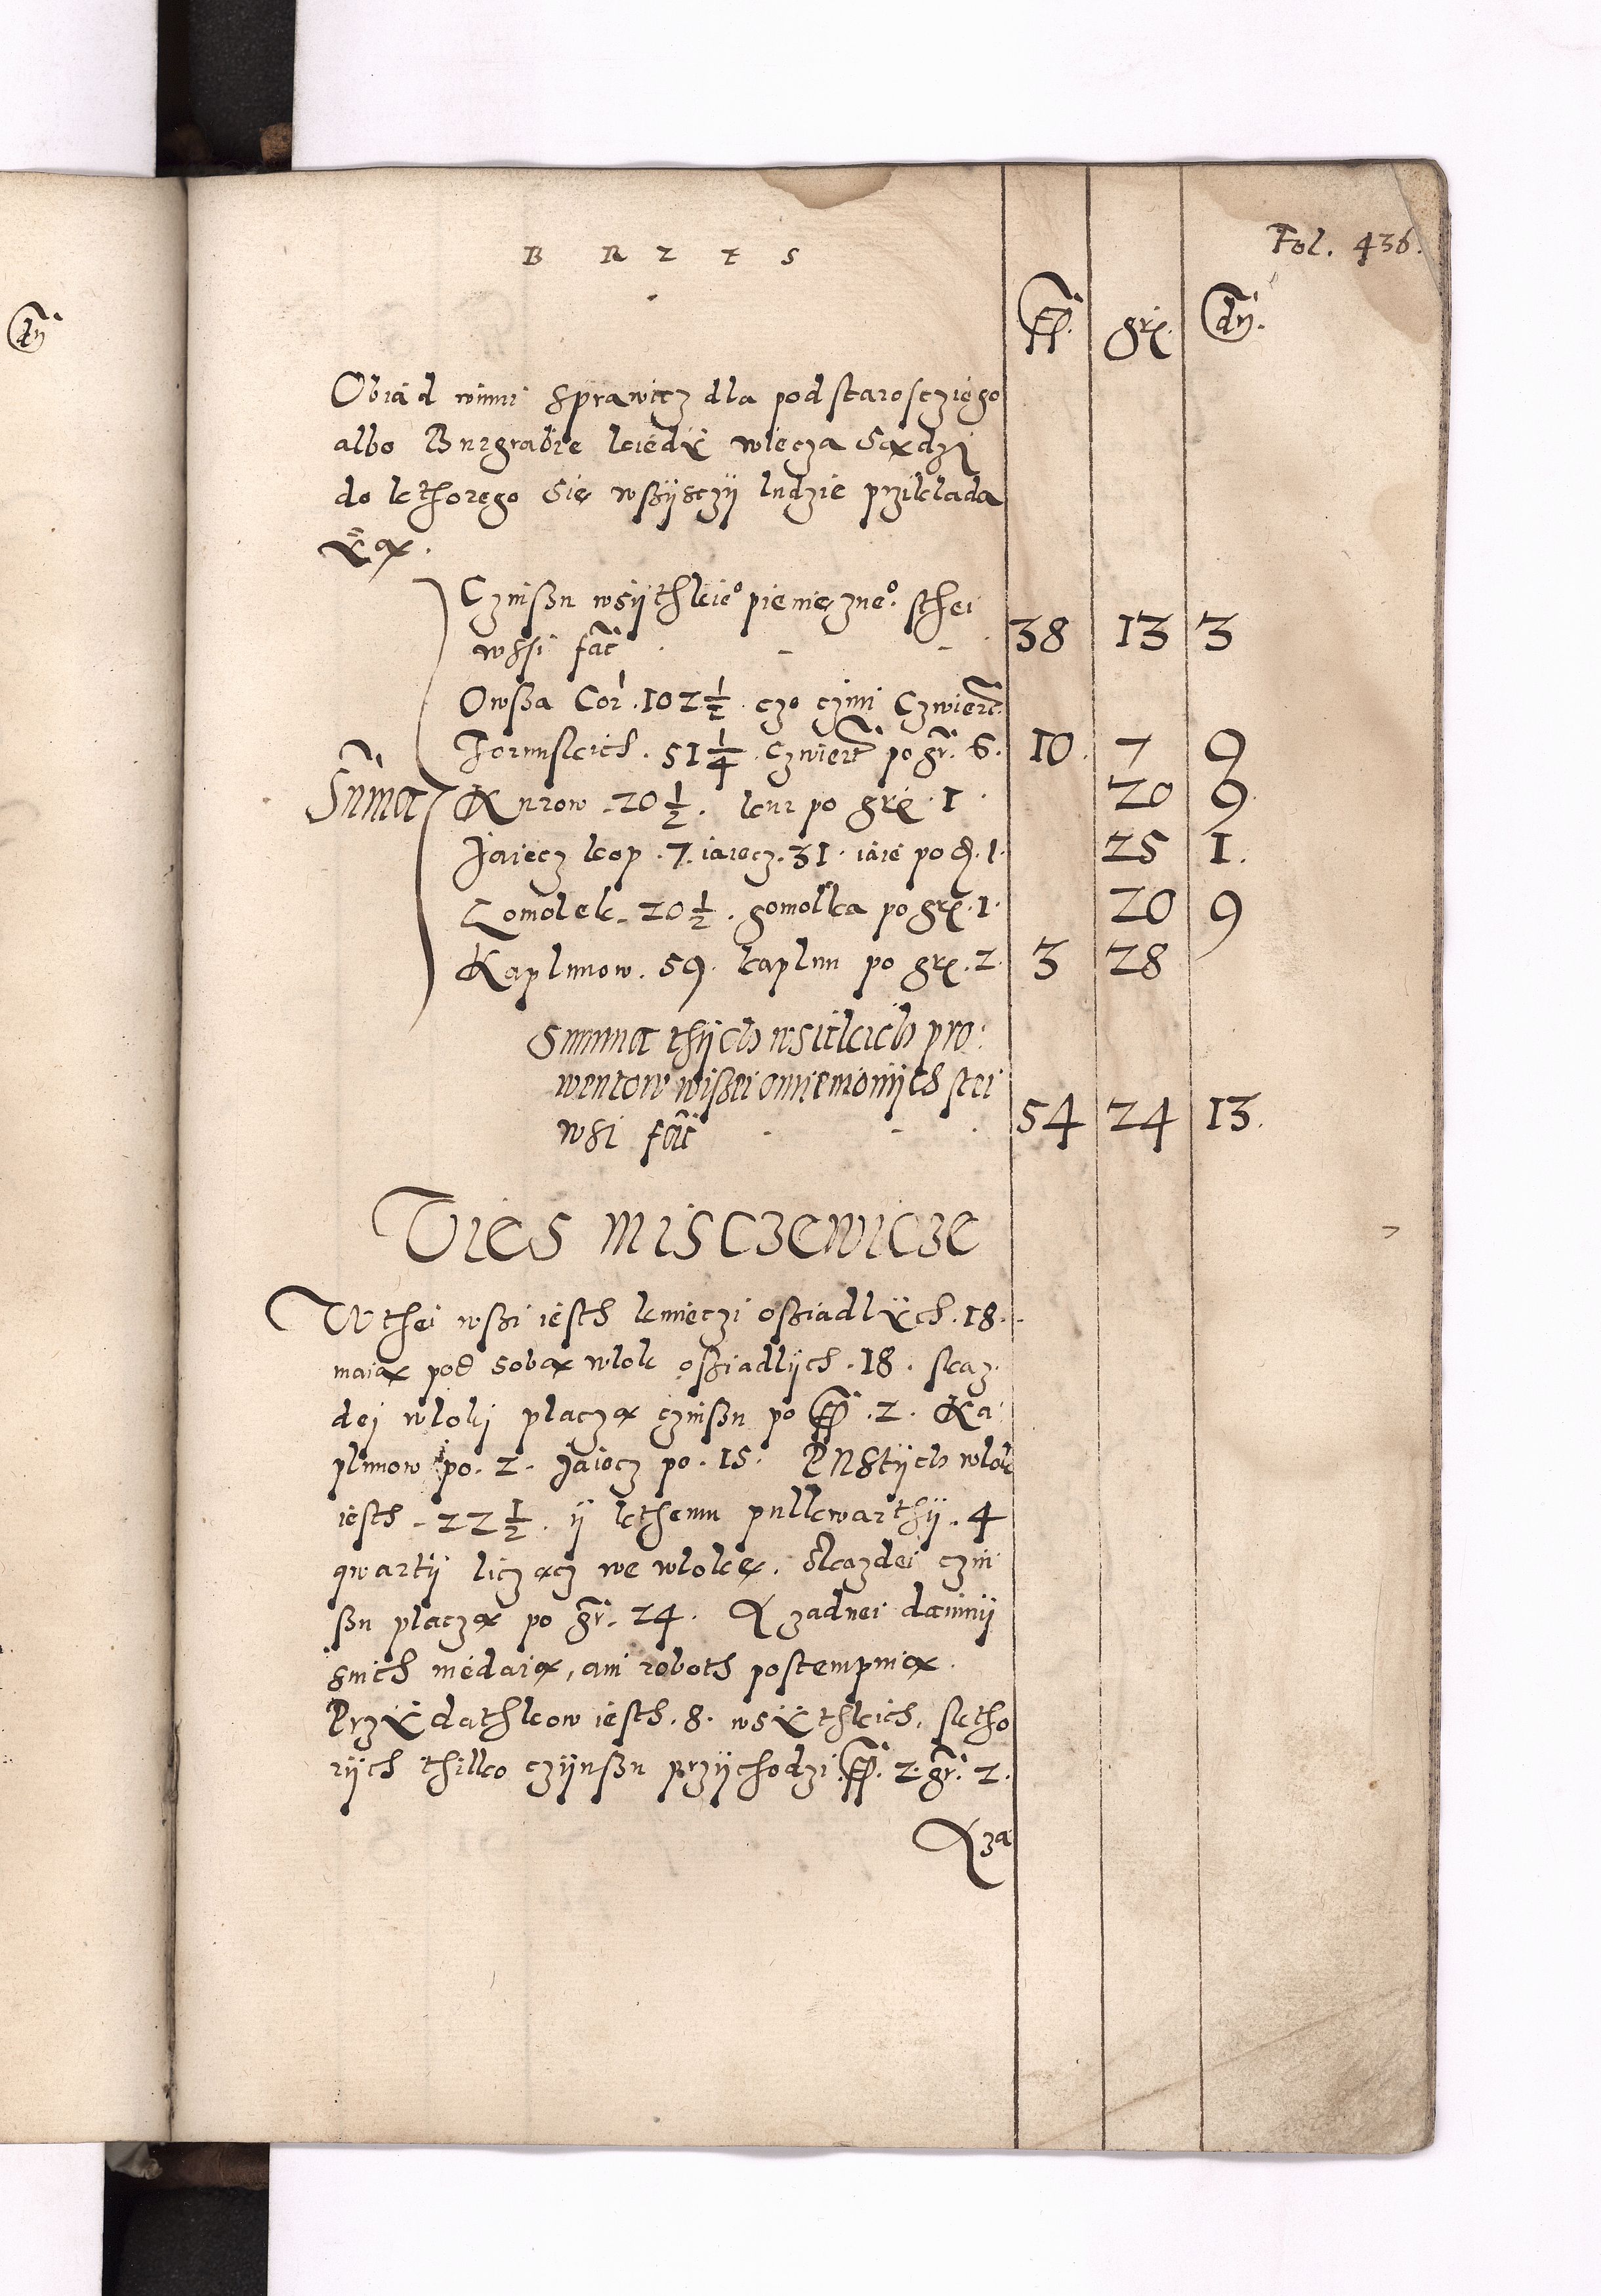 Fol. 436.
B R Z E S
ff. grͣ. dń.
dń
Obiad winni sprawicz dla podstarosczięgo
albo Burgrabie kiedÿ wiecza Sądzi
do kthorego Się wszÿsczÿ ludzie przikłada
ÿą.
Czinszu wsÿthkie° pieniężne°. sthei
wssi fac̃ . - - . 38 13 3
Owsza Cor. 102 1/2 czo czini Czwierc.
Toruńskich . 51 1/4 . Czwierc po gr. 6. 10. 7 9
Suma Kurow . 20 1/2 . kur po gr. 1 . 20 9.
Jaiecz kop . 7. iaiecz. 31. iaie po d. 1. 25 1.
Gomolek . 20 1/2 . gomolka po gr. 1. 20 9
Kaplunow . 59. kaplun po gr. 2. 3 28
Summa thÿch wsitkich pro-
wentow wiszei omienionÿch stei
wsi fac̃ - - . 54 24 13.
Wies Misczewicze
W thei wszi iesth kmieczi osziadlÿch . 18.
maią pod sobą wlok osziadlÿch . 18 . skaz-
dei wloki placzą czinszu po ff. 2. Ka-
plunow po. 2. Jaiecz po. 15. Pustÿch wlok
iesth . 22 1/2 . ÿ kthemu pulkwarthÿ . 4
qwartÿ licząc we wlokę. Skazdei czin-
szu placzą po gr. 24. A zadnei daninÿ
snich niedaią, ani roboth postempnią.
Przÿdathkow iesth . 8. wsÿthkich, sktho
rÿch thilko czÿnszu przÿchodzi ff. 2. gr. 2.
A za